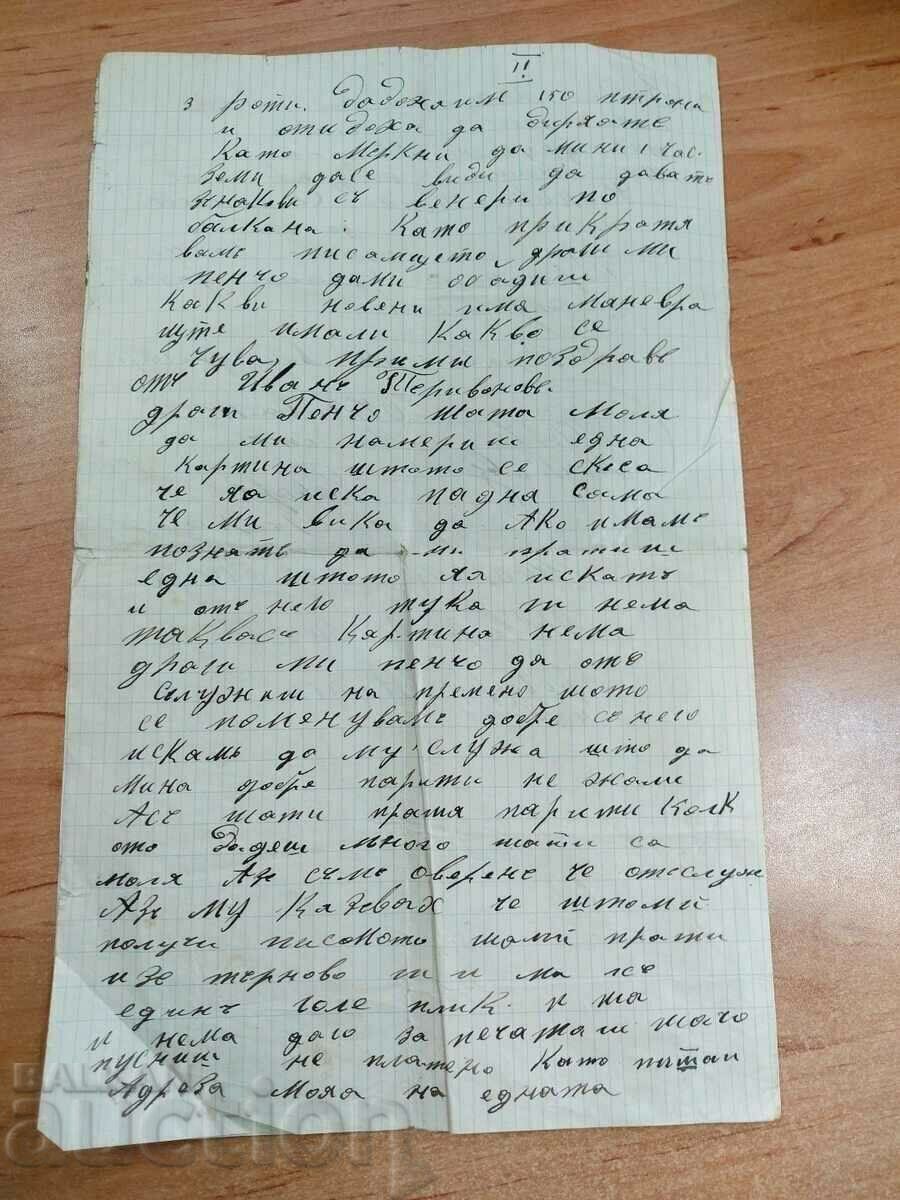 II
3 роти. Дадоха им 150 птрона
и отидоха да дирята те
Като меркни да мини 1 час.
земи да се види да давать
знакови съ венери по
балкана: Като прикратя
вамъ писамцето, драги ми
пенчо да ми обадиш
какви новени има маневра
щте имали какво се
чува, прими поздравъ
отъ Иванъ
драги Пенчо шата моля
да ми намериш една
картина штото се скеса
че яа иска падна сама
че ми вика да Ако имамъ
познатъ да ми пратиш
една штото яя искатъ
и отъ него тука ги нема
таквасъ картина нема
драги ми пенчо да отъ
сьлужиш на времено шото
се поменувамъ добре съ него
искамъ да му служа што да
мина добре парити не жали
Асъ шати пратя парити колк
ото дадеш много шати са
моля Азъ съмъ оверенъ че отслуж
Азъ му казвах че штоми
получи писомото шомй прати
изъ търново ги има съ
единъ голе плик. и ша
и нема даго запечаташ шачо
пусниш не платено като питаи
Адреза моя на едната
BALKAN
auction